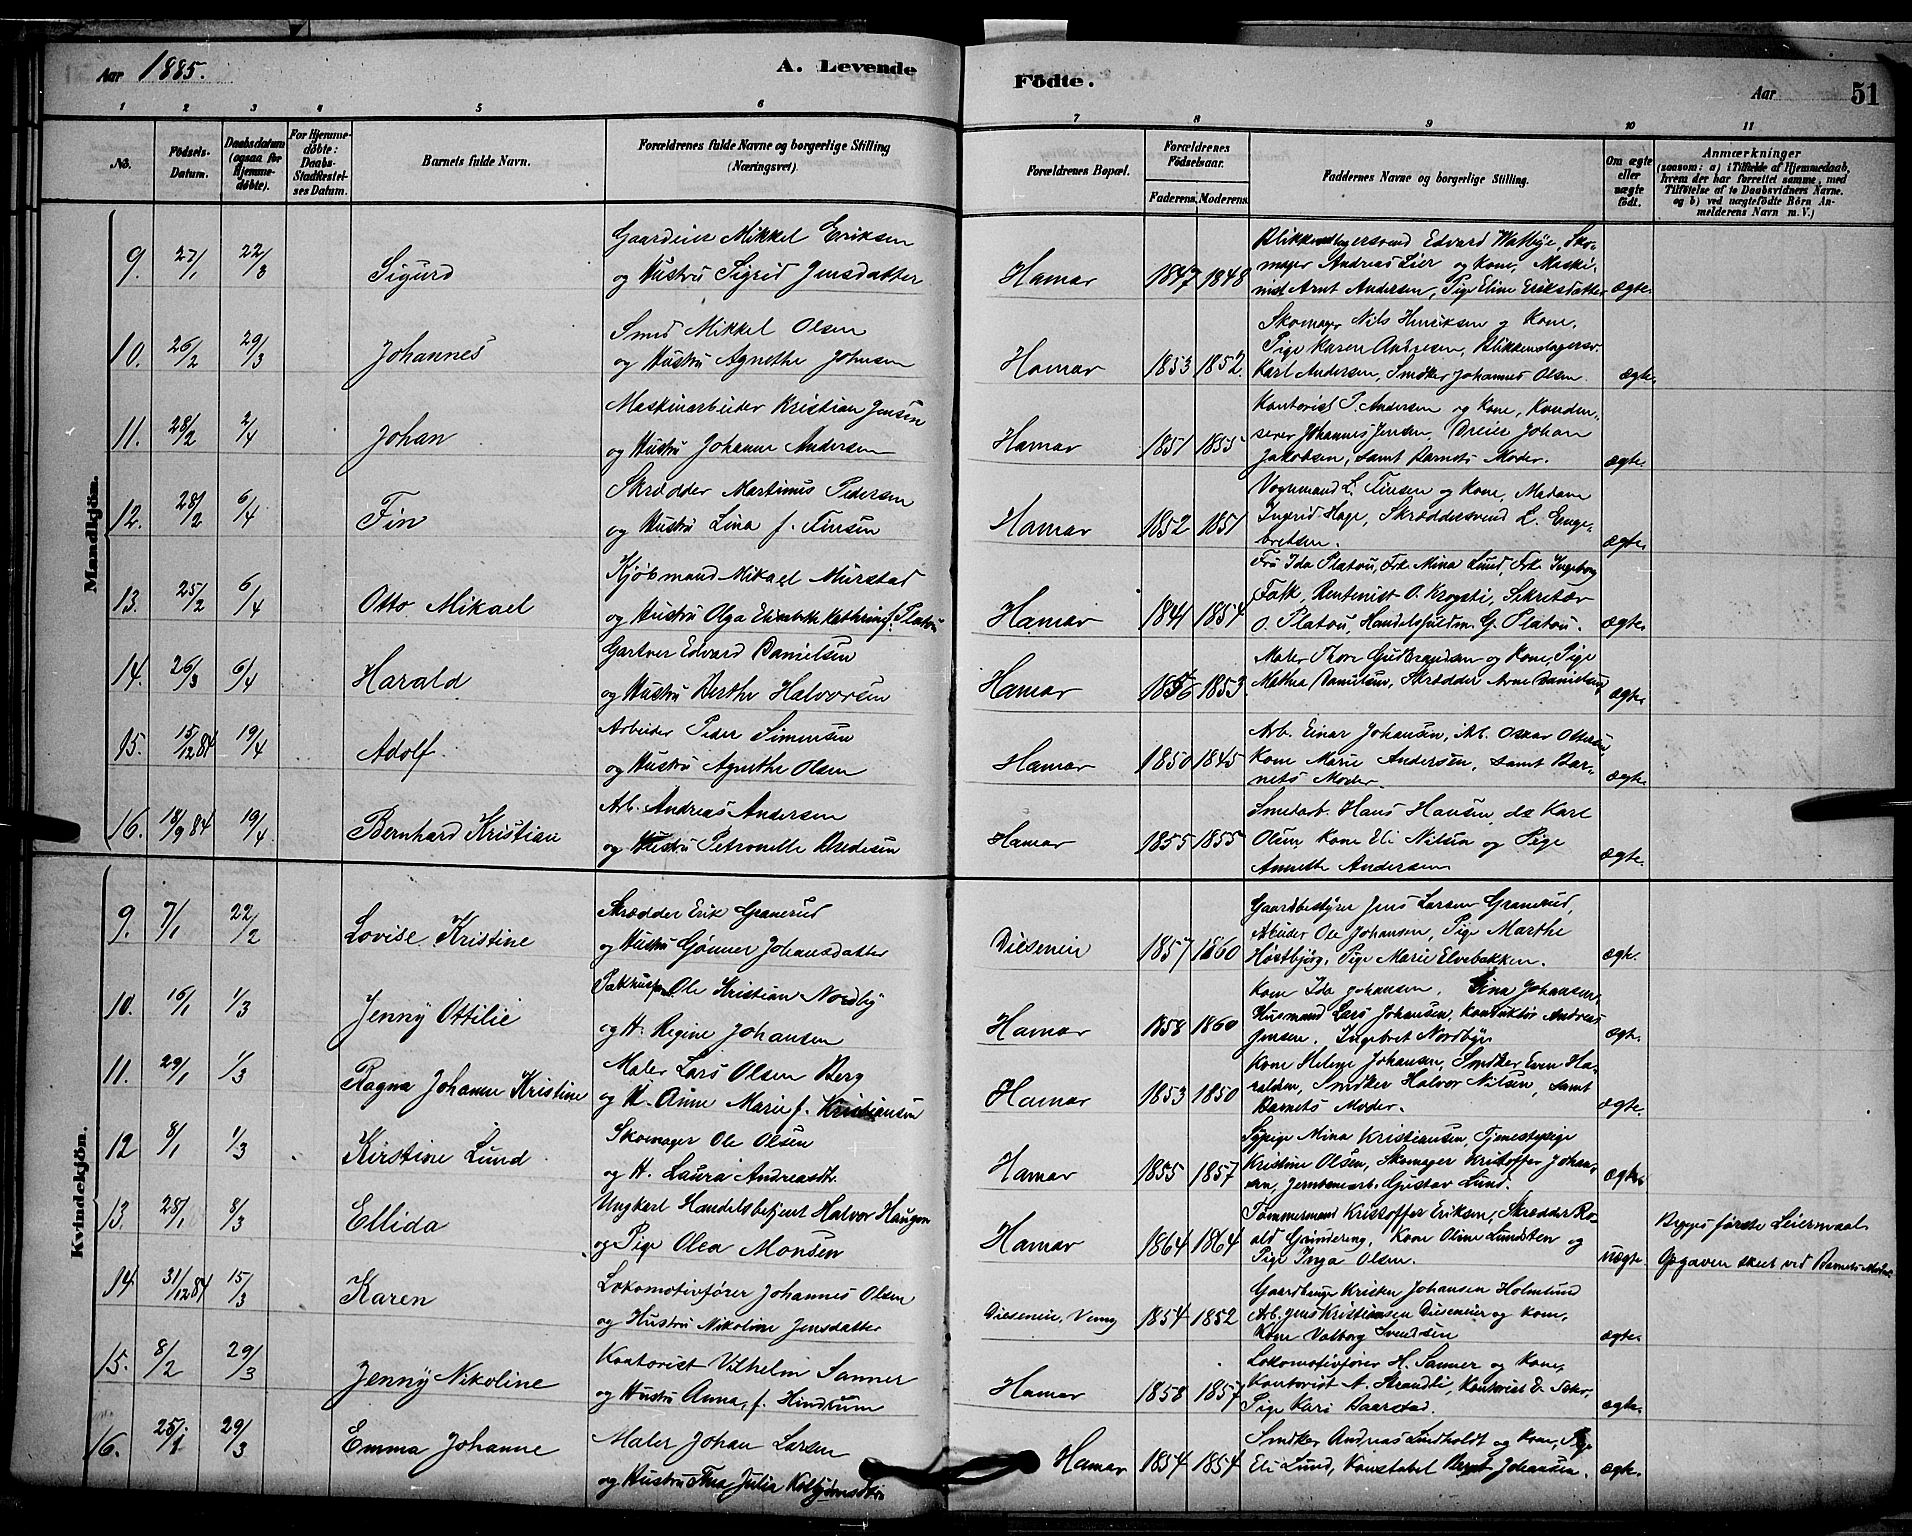 Aar 1885.
A. Levende
Födte.
Aar
51
1 2 3 4 5 6 7 8 9 10 11
No.
Födsels-Datum.
Daabsdatum (ogsaa for Hjemme-döbte).
For Hjemme-döbte: Daabs-Stadfæstel-ses Datum.
Barnets fulde Navn.
Forældrenes fulde Navne og borgerlige Stilling (Næringsvei).
Forældrenes Bopæl.
Forældrenes Födselsaar.
Faderens. Moderens.
Faddernes Navne og borgerlige Stilling.
Om ægte eller uægte födt.
Anmærkninger
(saasom: a) i Tilfælde af Hjemmedaab, hvem der har forrettet samme, med Tilföielse af to Daabsvidners Navne. og b) ved uægtefödte Börn An-melderens Navn m. V.)
Mandkjön.
9. 27/1 22/3 Sigurd
Gaardeier Mikkel Eriksen
og Hustru Sigrid Jensdatter
Hamar 1847 1848
Blikkenslagersvend Edvard Watbye, Sko-
mager Andreas Lier og Kone, Maski-
nist Arnt Andersen, Pige Eline Eriksdatter
ægte.
10. 26/2 29/3 Johannes
Smed Mikkel Olsen
og Hustru Agnethe Johnsen
Hamar 1853 1852.
Skomager Nils Henriksen og Kone,
Pige Karen Andresen, Blikkenslagersv.
Karl Andersen, Smdker Johannes Olsen.
ægte.
11. 28/2 2/4 Johan
Maskinarbeider Kristian Jensen
og Hustru Johanne Andersen
Hamar 1851 1855
Kontorist P. Andersen og Kone, Konduk-
Johannes Jensen, Dreier Johan
Jakobsen, samt Barnets Moder.
ægte.
12. 28/2 6/4 Fin
Skrædder Martinus Pedersen
og Hustru Lina f. Finsen
Hamar 1852 1851
Vognmand L. Finsen og Kone, Madam
Ingrid Hage, Skræddersvend L. Enge-
bretsen.
ægte.
13. 25/2 6/4 Otto Mikael
Kjöbmand Mikael Mürstad
og Hustru Olga Elisabeth Kathrine f. Platou
Hamar 1841 1854
Fru Ida Platou, Frk. Mina Lund, Frk. Ingeborg
Falk, Rentenist O. Krogsti, Sekretær
O. Platou, Handelsfuldm. G. Platou.
ægte.
14. 26/3 6/4 Harald
Gartner Edvard Danielsen
og Hustru Berthe Halvorsen
Hamar 1856 1853
Maler Thore Gudbrandsen og Kone, Pige
Mathea Danielsen, Skrædder Arne Danielsen,
ægte.
15. 15/12 84 19/4 Adolf
Arbeider Peder Simensen
og Hustru Agnethe Olsen
Hamar 1850 1845
Arb. Einar Johansen, Arb. Oskar Ottersen
Kone Marie Andersen, samt Bar-
nets Moder.
ægte.
16. 18/9 84 19/4 Bernhard Kristian
Arb. Andreas Andersen
og Hustru Petronelle Bredesen
Hamar 1855 1855
Smedarb. Hans Hansen, do Karl
Olsen Kone Eli Nilsen og Pige
Annette Andersen
ægte.
Kvindekjön.
9. 7/1 22/2 Lovise Kristine
Skrædder Erik Granerud
og Hustru Gönner Johansdatter
Dieseneie 1857 1860
Gaardbestyrer Jens Larsen Granerud,
Arbeider Ole Johansen, Pige Marthe
Höstbjörg, Pige Marie Elvebakken.
ægte.
10. 16/1 1/3 Jenny Ottilie
Ole Kristian Nordby
og H. Regine Johansen
Hamar 1858 1860
Kone Ida Johansen, Lina Johansen,
Husmand Lars Johansen, Konduktör Andreas
Jensen, Ingebret Nordbye.
ægte.
11. 29/1 1/3 Ragna Johanne Kristine
Maler Lars Olsen Berg
og H. Anne Marie f. Kristiansen
Hamar 1853 1850
Kone Helene Johansen, Smdker Even Ha-
raldsen, Smdker Halvor Nilsen, samt
Barnets Moder.
ægte.
12 8/1 1/3 Kirstine Lund
Skomager Ole Olsen
og H. Laura Andreasdtr.
Hamar 1855 1857
Sypige Mina Kristiansen, Tjenestepige
Kristine Olsen, Skomager Kristoffer Johan-
sen, Jernbanearb. Gustav Lund.
ægte.
13. 28/1 8/3 Ellida
Ungkarl Handelsbetjent Halvor Haugen
og Pige Olea Monsen
Hamar 1864 1864
Tömmermand Kristoffer Eriksen, Skrædder Ro-
ald Grundering, Kone Oline Lundsten og
Pige Inga Olsen.
uægte.
Begges förste Leiermaal.
Opgaven skeet ved Barnets Moder
14. 31/12 84 15/3 Karen
Lokomotivförer Johannes Olsen
og Hustru Nikoline Jensdatter
Dieseneie, Vang 1854 1852
Gaardbruger Kristen Johansen Holmlund
Arb. Jens Kristiansen Dieseneie og Kone,
Kone Valborg Svendsen
ægte.
15. 8/2 29/3 Jenny Nikoline
Kontorist Vilhelm Sanner
og Hustru Anna, f. Hindrum
Hamar 1858 1857
Lokomotivförer H. Sanner og Kone,
Kontorist A. Strandli, Kontorist E.
Pige Kari Baarstad.
ægte.
16. 25/1 29/3 Emma Johanne
Maler Johan Larsen
og Hustru Thea Julie
Hamar 1854 1854
Smdker Andreas Lindholdt og Kone, Pige
Eli Lund, Konstabel Bernt Johansen.
ægte.